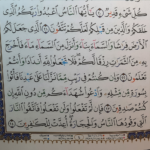 كُلِّ شَىْءٍ قَدِيرٌ ۝ يَٰٓأَيُّهَا ٱلنَّاسُ ٱعْبُدُوا۟ رَبَّكُمُ ٱلَّذِى
خَلَقَكُمْ وَٱلَّذِينَ مِن قَبْلِكُمْ لَعَلَّكُمْ تَتَّقُونَ ۝ ٱلَّذِى جَعَلَ لَكُمُ
ٱلْأَرْضَ فِرَٰشًا وَٱلسَّمَآءَ بِنَآءً وَأَنزَلَ مِنَ ٱلسَّمَآءِ مَآءً فَأَخْرَجَ
بِهِۦ مِنَ ٱلثَّمَرَٰتِ رِزْقًا لَّكُمْ فَلَا تَجْعَلُوا۟ لِلَّهِ أَندَادًا وَأَنتُمْ
تَعْلَمُونَ ۝ وَإِن كُنتُمْ فِى رَيْبٍ مِّمَّا نَزَّلْنَا عَلَىٰ عَبْدِنَا فَأْتُوا۟
بِسُورَةٍ مِّن مِّثْلِهِۦ وَٱدْعُوا۟ شُهَدَآءَكُم مِّن دُونِ ٱللَّهِ إِن كُنتُمْ
صَٰدِقِينَ ۝ فَإِن لَّمْ تَفْعَلُوا۟ وَلَن تَفْعَلُوا۟ فَٱتَّقُوا۟ ٱلنَّارَ
ٱلَّتِى وَقُودُهَا ٱلنَّاسُ وَٱلْحِجَارَةُ أُعِدَّتْ لِلْكَٰفِرِينَ